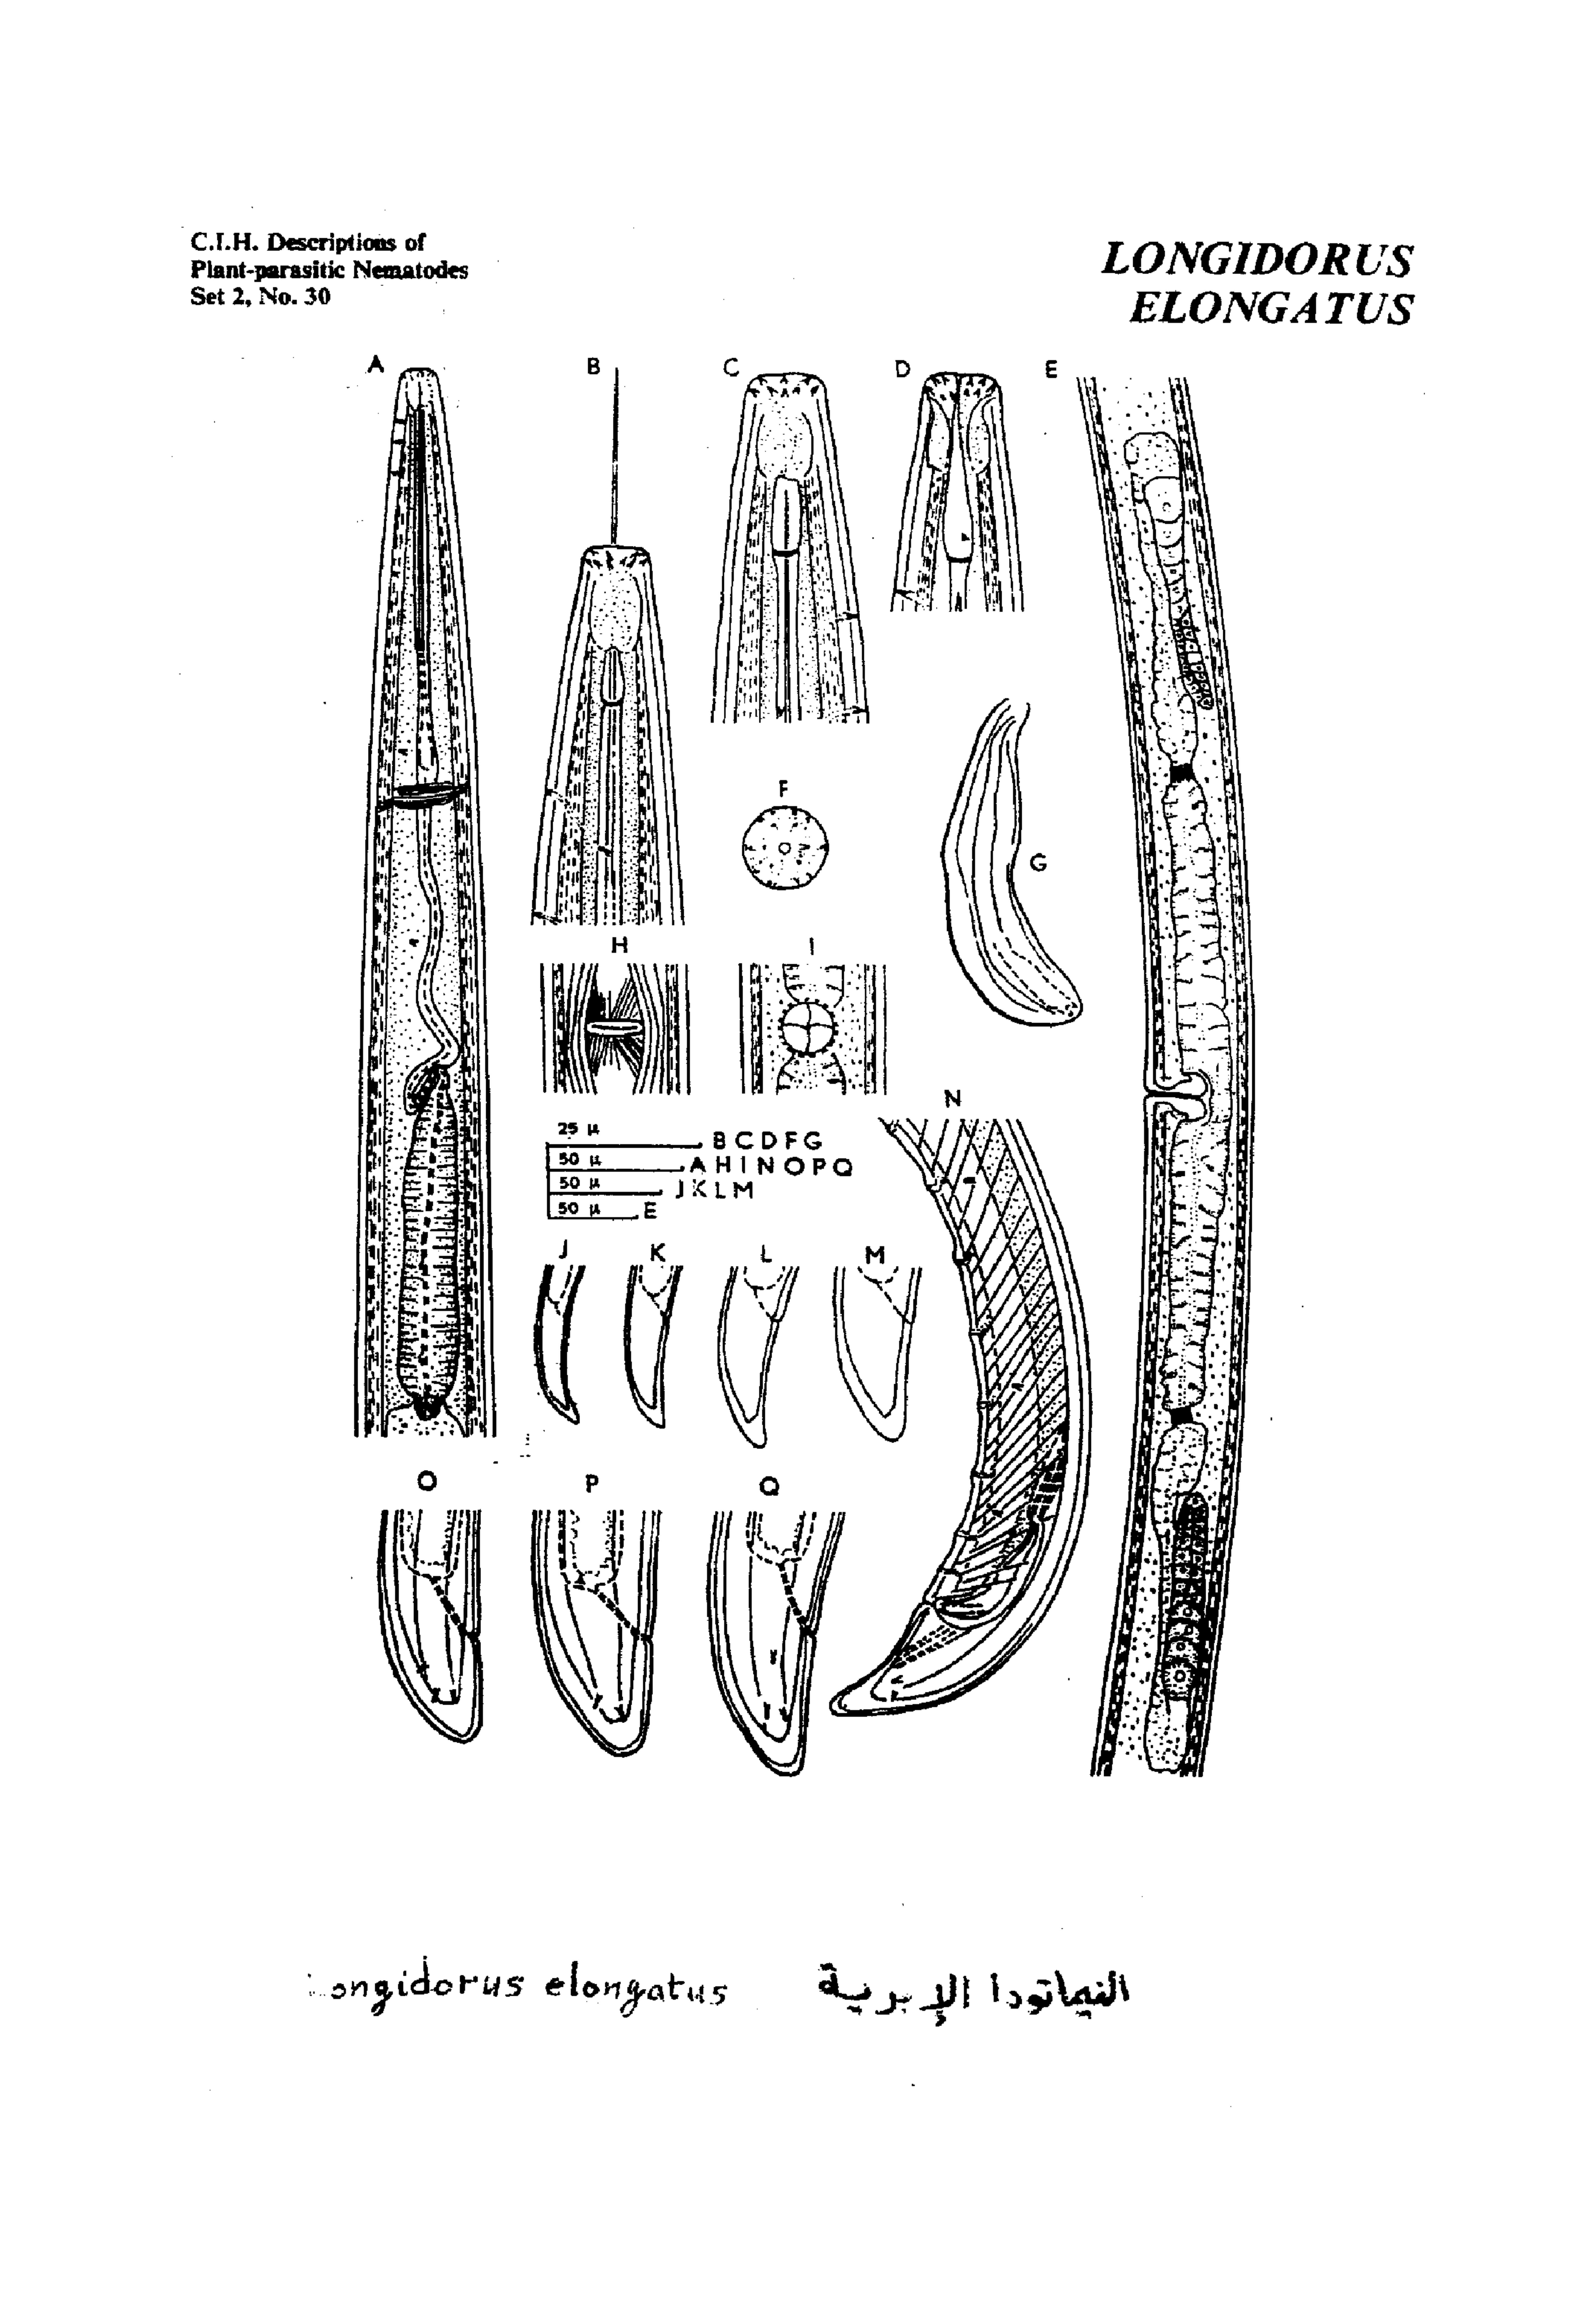 C.I.H. Descriptions of
Plant-parasitic Nematodes
Set 2, No. 30
LONGIDORUS
ELONGATUS
A B C D E
F
G
H I
N
25 µ B C D F G
50 µ A H I N O P Q
50 µ J K L M
50 µ E
J K L M
O P Q
ongidorus elongatus النيماتودا الإبرية